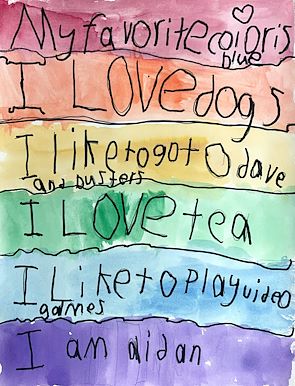 My favorite color is
blue
I LOVE dogs
I like to go t O dave
and busters
I LOVE tea
I Like to play video
games
I am aidan